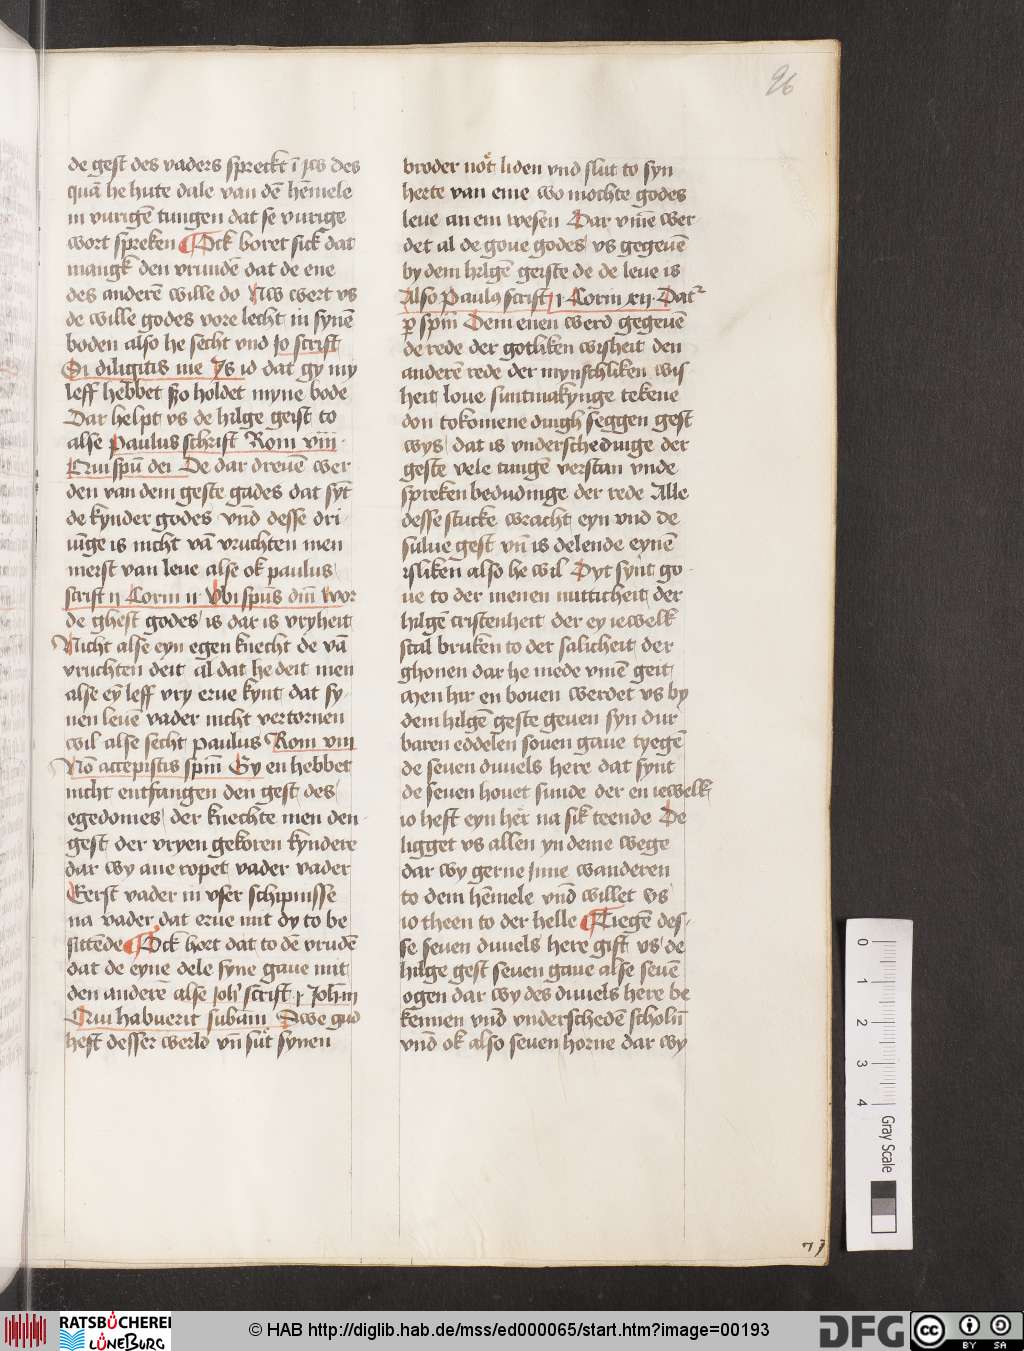 96
de gest des vaders spreckt ī jw des
quā he hute dale van dē hēmele
in vurigē tungen dat se vurige
wort spreken Ock horet sick dat
mangk den vrundē dat de ene
des anderē wille do Nw wert vs
de wille godes vore lecht in synē
boden also he secht vnd Jo scrift
Si diligitis me Js id dat gy my
leff hebbet szo holdet myne bode
Dar helpt vs de hilge geist to
alse Paulus schrift Rom viii
Qui spū dei De dar dreuē wer
den van dem geste gades dat syt
de kynder godes vnd desse dri
uīge is nicht vā vruchten men
merst van leue alse ok paulus
scrift ij Corin ii Vbi spūs dīn wor
de ghest godes is dat is vryheit
Nicht alse eyn egen knecht de vā
vruchten deit al dat he deit men
alse eȳ leff vry erue kynt dat sy
nen leuē vader nicht vertornen
wil alse secht paulus Rom viii
Nō accepistis spīn Gy en hebbet
nicht entfangen den gest des
egedomes der knechte men den
gest der vryen gekoren kyndere
dar wy ane ropet vader vader
Eerst vader in vser schipnisse
na vader dat erue mit dy to be
sittēde Ock hort dat to dē vrudē
dat de eyne dele syne gaue mit
den anderē alse Joh scrift j Joh iij
Qui habuerit subām Swe gud
heft desser werld vn̄ sut synen
broder not liden vnd slut to syn
herte van eme wo mochte godes
leue an em wesen Dar vmē wer
det al de goue godes vs gegeuē
by dem hilgē geiste de de leue is
Also Paulus scrift j Corin xij Dat
p spīn Dem enen werd gegeuē
de rede der gotliken wisheit den
anderē rede der mynschliken wis
heit loue suntmakynge tekene
don tokomene dingh seggen gest
wys dat is vnderschedinge der
geste vele tungē verstan vnde
spreken bedudinge der rede Alle
desse stucke wracht eyn vnd de
sulue gest vn̄ is delende eynē
isliken also he wil Dyt synt go
ue to der menen nutticheit der
hilgē cristenheit der ey iewelk
scal bruken to der salicheit der
ghonen dar he mede vmē geit
Men hir en bouen werdet vs by
dem hilgē geste geuen syn dur
baren eddelen souen gaue tyegē
de seuen duuels here dat synt
de seuen houet sunde der en iewelk
io heft eyn her na sik teende De
ligget vs allen yn deme wege
dar wy gerne Jnne wanderen
to dem hēmele vnd willet vs
io theen to der helle Tiegē des
se seuen duuels here gift vs de
hilge gest seuen gaue alse seuē
ogen dar wy des duuels here be
kennen vnd vnderschedē scholn
vnd ok also seuen horne dar wy
0 1 2 3 4 Gray Scale
RATSBÜCHEREI
LÜNEBURG
© HAB http://diglib.hab.de/mss/ed000065/start.htm?image=00193
DFG
cc BY SA